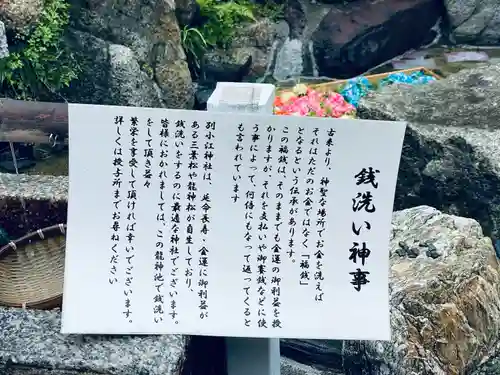 銭洗い神事
古来より、神聖な場所でお金を洗えば
それはただのお金ではなく「福銭」
となるという伝承があります。
この福銭は、そのままでも金運の御利益を授
かりますが、それを支払いや御賽銭などに使
う事によって、何倍にもなって返ってくると
も言われています
別小江神社は、延命長寿・金運に御利益が
ある三葉松や龍神松が自生しており、
銭洗いをするのに最適な神社でございます。
皆様におかれましては、この龍神池で銭洗い
をして頂き益々
繁栄を享受して頂ければ幸いでございます。
詳しくは授与所までお尋ねください